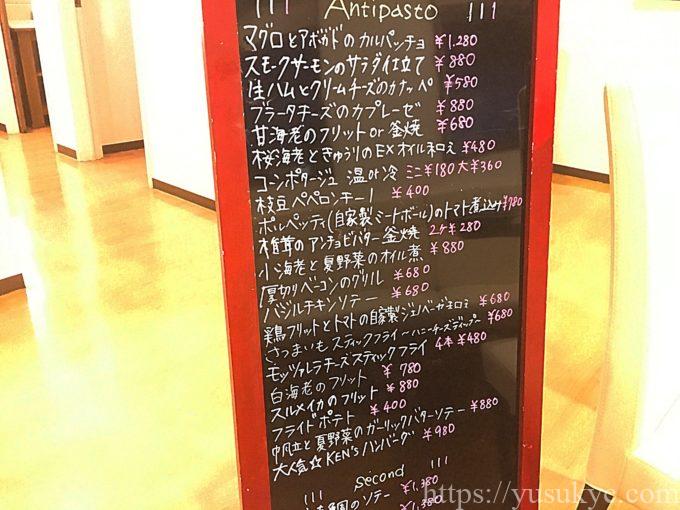 111 Antipasto 111
マグロとアボガドのカルパッチョ ¥1.280
スモークサーモンのサラダ仕立て ¥880
生ハムとクリームチーズのカナッペ ¥580
ブラータチーズのカプレーゼ ¥880
甘海老のフリット or 釜焼 ¥680
桜海老ときゅうりのEXオイル和え ¥480
コーンポタージュ 温 or 冷 ミニ¥180 大¥360
枝豆ペペロンチー! ¥400
ポルペッティ(自家製ミートボール)のトマト煮込み ¥780
椎茸のアンチョビバター釜焼 2ケ¥280
小海老と夏野菜のオイル煮 ¥880
厚切りベーコンのグリル ¥680
バジルチキンソテー ¥680
鶏フリットとトマトの自家製ジェノベーゼ和え ¥680
さつまいもスティックフライ〜ハニーチーズディップ〜 ¥680
モッツァレラチーズスティックフライ 4本 ¥480
白海老のフリット ¥780
スルメイカのフリット ¥880
フライドポテト ¥400
帆立と夏野菜のガーリックバターソテー ¥880
大人気☆KEN'sハンバーグ ¥980
111 second 111
鯛のソテー ¥1,380
¥1,380
https://yusukye.com